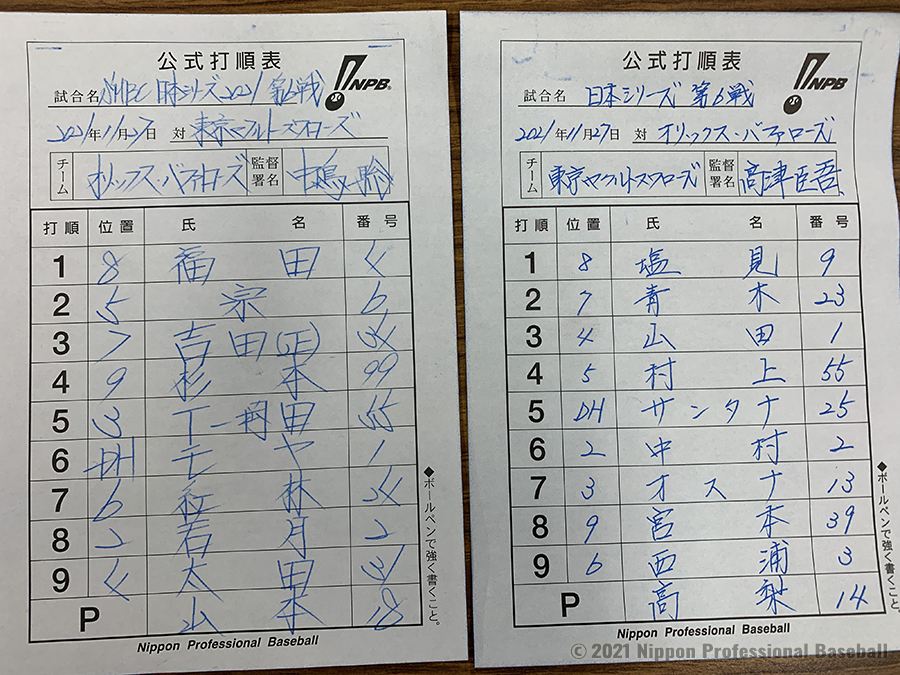 公式打順表
NPB
試合名 SMBC 日本シリーズ2021 第6戦
2021年11月27日 対 東京ヤクルトスワローズ
チーム オリックス・バファローズ 監督署名 中嶋聡
打順 位置 氏名 番号
1 8 福田 4
2 5 宗 6
3 7 吉田(正) 34
4 9 杉本 99
5 3 T-岡田 55
6 DH モヤ 1
7 6 紅林 24
8 2 若月 2
9 4 太田 31
P 山本 18
◆ボールペンで強く書くこと。
Nippon Professional Baseball
公式打順表
NPB
試合名 日本シリーズ 第6戦
2021年11月27日 対 オリックス・バファローズ
チーム 東京ヤクルトスワローズ 監督署名 高津臣吾
打順 位置 氏名 番号
1 8 塩見 9
2 7 青木 23
3 4 山田 1
4 5 村上 55
5 DH サンタナ 25
6 2 中村 2
7 3 オスナ 13
8 9 宮本 39
9 6 西浦 3
P 高梨 14
◆ボールペンで強く書くこと。
Nippon Professional Baseball
© 2021 Nippon Professional Baseball